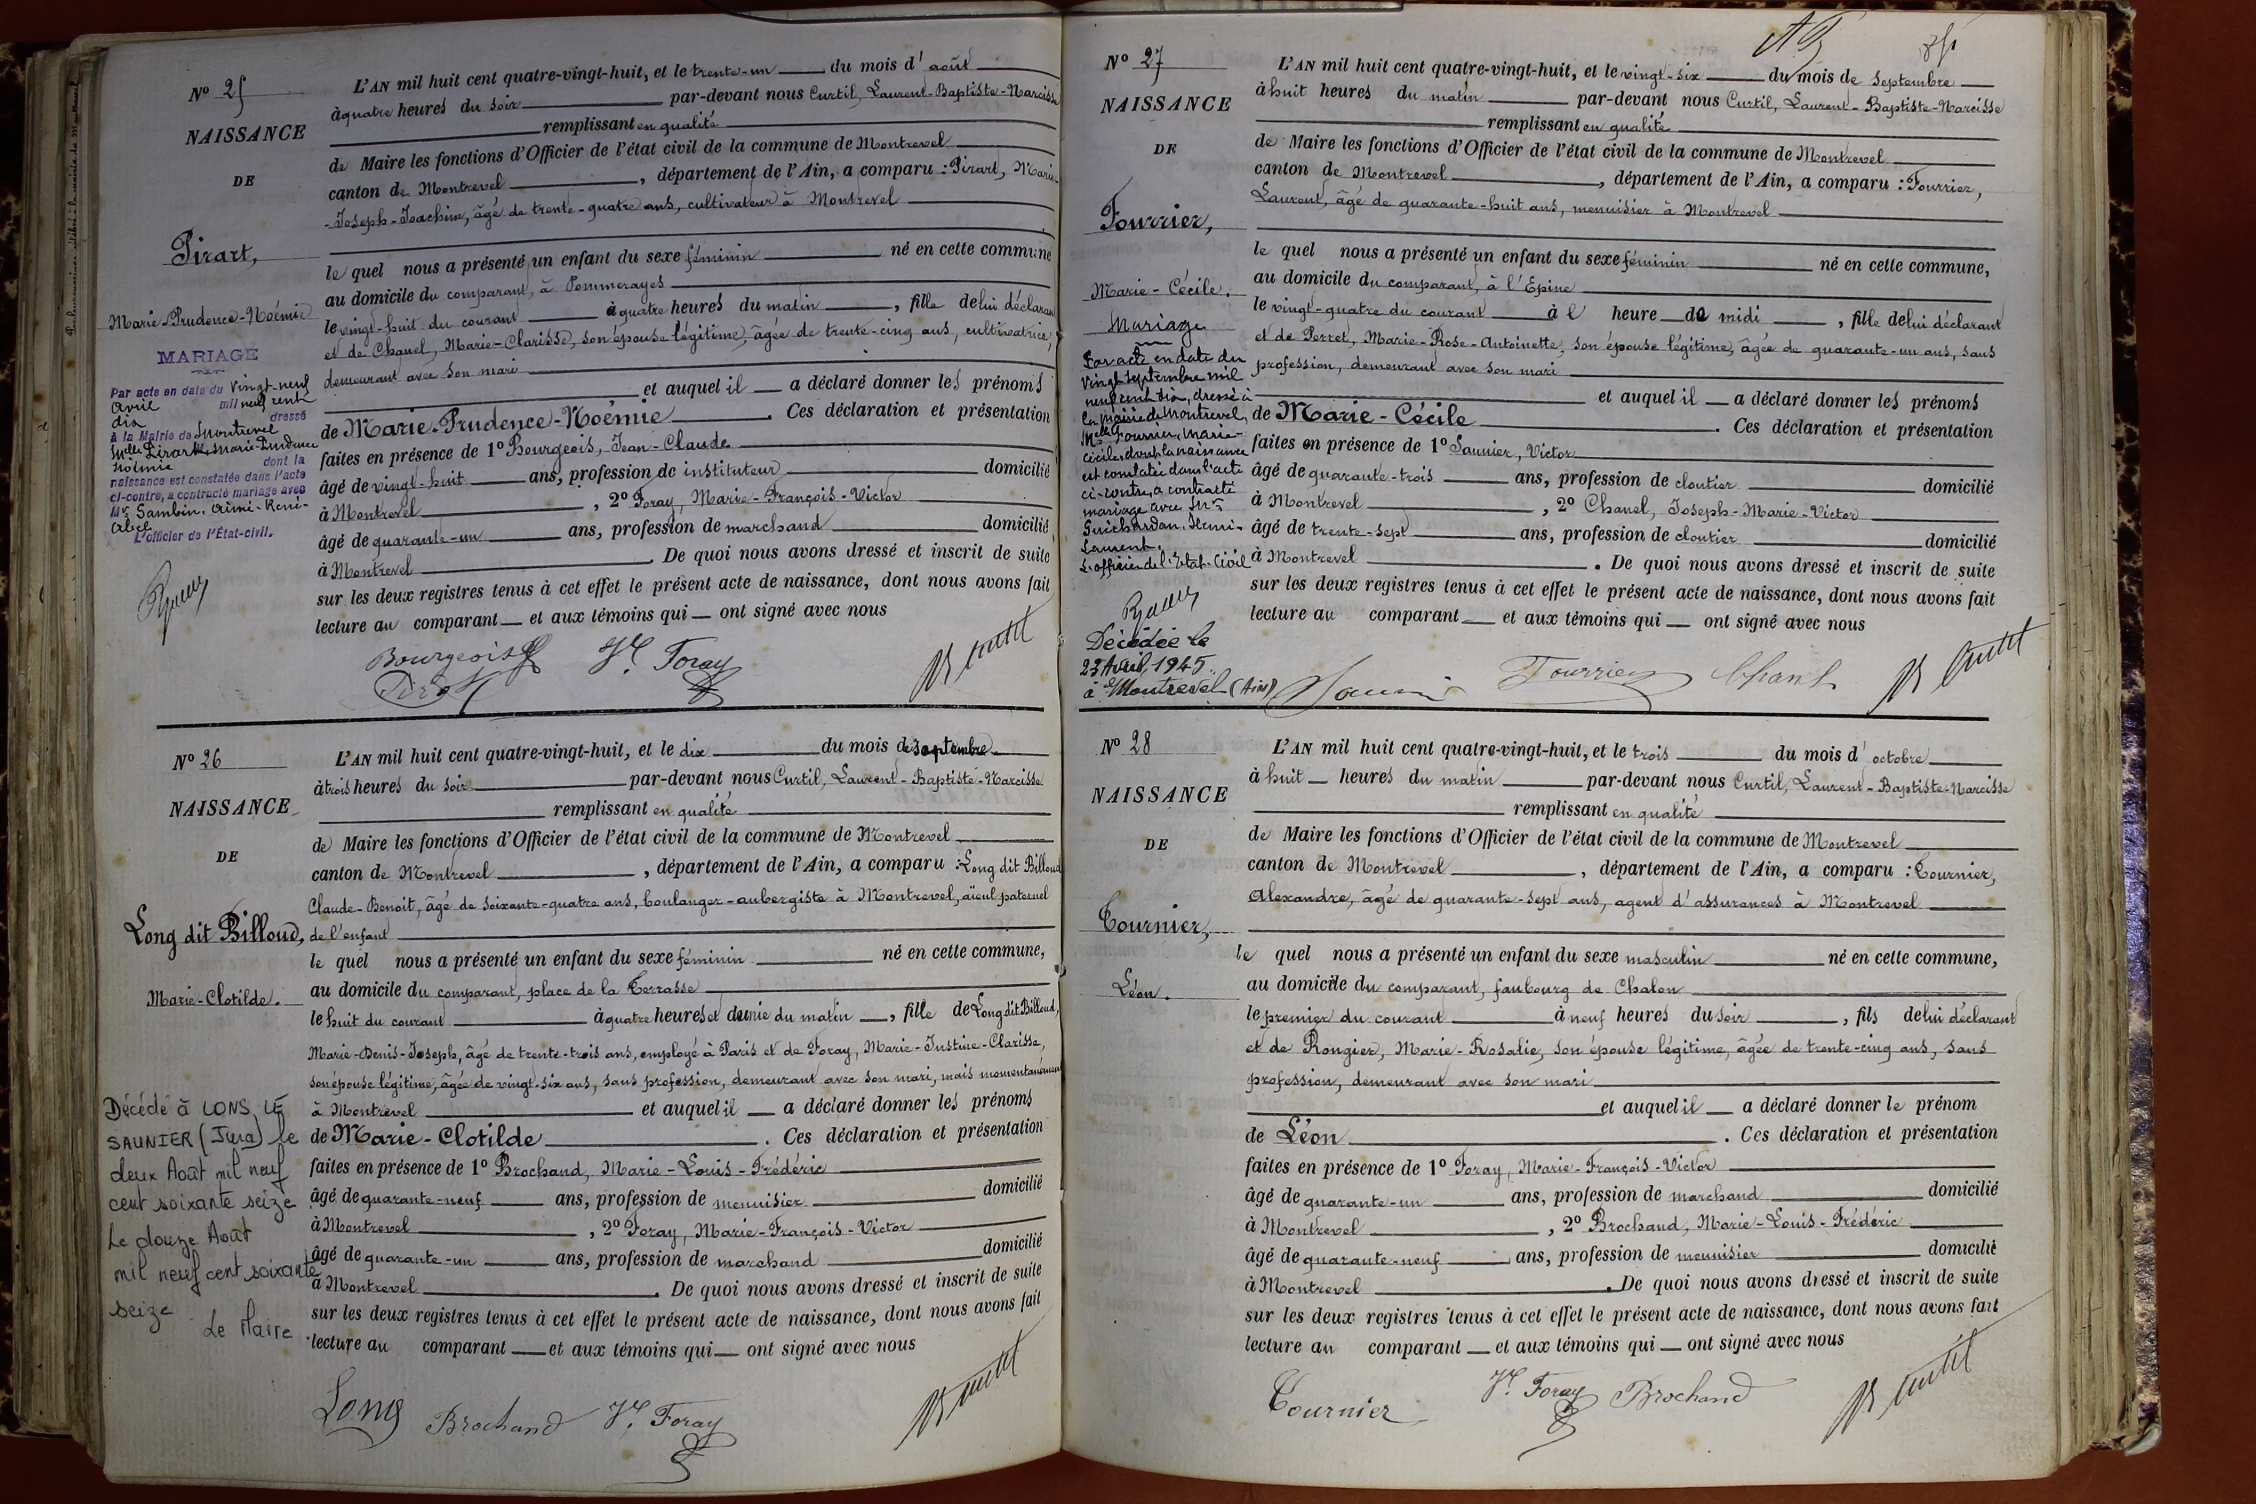 N° 25
NAISSANCE
DE
Pirart,
Marie-Prudence-Noémie
MARIAGE
Par acte en date du vingt-neuf
avril mil neuf cent
dix dressé
à la Mairie de Montrevel
Melle Pirart, Marie-Prudence
Noémie dont la
naissance est constatée dans l'acte
ci-contre, a contracté mariage avec
Mr Sambin, Aimé-René-
Abel
L'officier de l'État-civil.
L'AN mil huit cent quatre-vingt-huit, et le trente-un du mois d'août
à quatre heures du soir par-devant nous Curtil, Laurent-Baptiste-Narcisse
remplissant en qualité
de Maire les fonctions d'Officier de l'état civil de la commune de Montrevel
canton de Montrevel, département de l'Ain, a comparu : Pirart, Marie-
-Joseph-Joachim, âgé de trente-quatre ans, cultivateur à Montrevel
le quel nous a présenté un enfant du sexe féminin né en cette commune
au domicile du comparant, à Pommerayes
le vingt-huit du courant à quatre heures du matin, fille de lui déclarant
et de Chanel, Marie-Clarisse, son épouse légitime, âgée de trente-cinq ans, cultivatrice,
demeurant avec son mari
et auquel il a déclaré donner les prénoms
de Marie-Prudence-Noémie. Ces déclaration et présentation
faites en présence de 1° Bourgeois, Jean-Claude
âgé de vingt-huit ans, profession de instituteur domicilié
à Montrevel, 2° Foray, Marie-François-Victor
âgé de quarante-un ans, profession de marchand domicilié
à Montrevel. De quoi nous avons dressé et inscrit de suite
sur les deux registres tenus à cet effet le présent acte de naissance, dont nous avons fait
lecture au comparant et aux témoins qui ont signé avec nous
Bourgeois Vr. Foray
N° 26
NAISSANCE
DE
Long dit Billoud,
Marie-Clotilde.
Décédé à LONS LE
SAUNIER (Jura) le
deux Août mil neuf
cent soixante seize
Le douze Août
mil neuf cent soixante
seize
Le Maire
L'AN mil huit cent quatre-vingt-huit, et le dix du mois de septembre
à trois heures du soir par-devant nous Curtil, Laurent-Baptiste-Narcisse
remplissant en qualité
de Maire les fonctions d'Officier de l'état civil de la commune de Montrevel
canton de Montrevel, département de l'Ain, a comparu : Long dit Billoud
Claude-Benoit, âgé de soixante-quatre ans, boulanger-aubergiste à Montrevel, aïeul paternel
de l'enfant
le quel nous a présenté un enfant du sexe féminin né en cette commune,
au domicile du comparant, place de la Terrasse
le huit du courant à quatre heures et demie du matin, fille de Long dit Billoud,
Marie-Denis-Joseph, âgé de trente-trois ans, employé à Paris et de Foray, Marie-Justine-Clarisse,
son épouse légitime, âgée de vingt-six ans, sans profession, demeurant avec son mari, mais momentanément
à Montrevel et auquel il a déclaré donner les prénoms
de Marie-Clotilde. Ces déclaration et présentation
faites en présence de 1° Brochand, Marie-Louis-Frédéric
âgé de quarante-neuf ans, profession de menuisier domicilié
à Montrevel, 2° Foray, Marie-François-Victor
âgé de quarante-un ans, profession de marchand domicilié
à Montrevel. De quoi nous avons dressé et inscrit de suite
sur les deux registres tenus à cet effet le présent acte de naissance, dont nous avons fait
lecture au comparant et aux témoins qui ont signé avec nous
Long Brochand Vr. Foray
N° 27
NAISSANCE
DE
Fourrier,
Marie-Cécile.
Mariage
Par acte en date du
vingt septembre mil
neuf cent dix, dressé à
la mairie de Montrevel,
Melle Fourrier, Marie-
Cécile, dont la naissance
est constatée dans l'acte
ci-contre, a contracté
mariage avec Mr
Guichardan, Henri-
Laurent.
L'officier de l'Etat-Civil
Décédée le
23 Avril 1945
à Montrevel (Ain)
L'AN mil huit cent quatre-vingt-huit, et le vingt-six du mois de septembre
à huit heures du matin par-devant nous Curtil, Laurent-Baptiste-Narcisse
remplissant en qualité
de Maire les fonctions d'Officier de l'état civil de la commune de Montrevel
canton de Montrevel, département de l'Ain, a comparu : Fourrier,
Laurent, âgé de quarante-huit ans, menuisier à Montrevel
le quel nous a présenté un enfant du sexe féminin né en cette commune,
au domicile du comparant, à l'Epine
le vingt-quatre du courant à l'heure de midi, fille de lui déclarant
et de Perret, Marie-Rose-Antoinette, son épouse légitime, âgée de quarante-un ans, sans
profession, demeurant avec son mari
et auquel il a déclaré donner les prénoms
de Marie-Cécile. Ces déclaration et présentation
faites en présence de 1° Saunier, Victor
âgé de quarante-trois ans, profession de cloutier domicilié
à Montrevel, 2° Chanel, Joseph-Marie-Victor
âgé de trente-sept ans, profession de cloutier domicilié
à Montrevel. De quoi nous avons dressé et inscrit de suite
sur les deux registres tenus à cet effet le présent acte de naissance, dont nous avons fait
lecture au comparant et aux témoins qui ont signé avec nous
Fourrier Chanel
N° 28
NAISSANCE
DE
Tournier,
Léon.
L'AN mil huit cent quatre-vingt-huit, et le trois du mois d'octobre
à huit heures du matin par-devant nous Curtil, Laurent-Baptiste-Narcisse
remplissant en qualité
de Maire les fonctions d'Officier de l'état civil de la commune de Montrevel
canton de Montrevel, département de l'Ain, a comparu : Tournier,
Alexandre, âgé de quarante-sept ans, agent d'assurances à Montrevel
le quel nous a présenté un enfant du sexe masculin né en cette commune,
au domicile du comparant, faubourg de Chalon
le premier du courant à neuf heures du soir, fils de lui déclarant
et de Rongier, Marie-Rosalie, son épouse légitime, âgée de trente-cinq ans, sans
profession, demeurant avec son mari
et auquel il a déclaré donner le prénom
de Léon. Ces déclaration et présentation
faites en présence de 1° Foray, Marie-François-Victor
âgé de quarante-un ans, profession de marchand domicilié
à Montrevel, 2° Brochand, Marie-Louis-Frédéric
âgé de quarante-neuf ans, profession de menuisier domicilié
à Montrevel. De quoi nous avons dressé et inscrit de suite
sur les deux registres tenus à cet effet le présent acte de naissance, dont nous avons fait
lecture au comparant et aux témoins qui ont signé avec nous
Tournier Vr. Foray Brochand